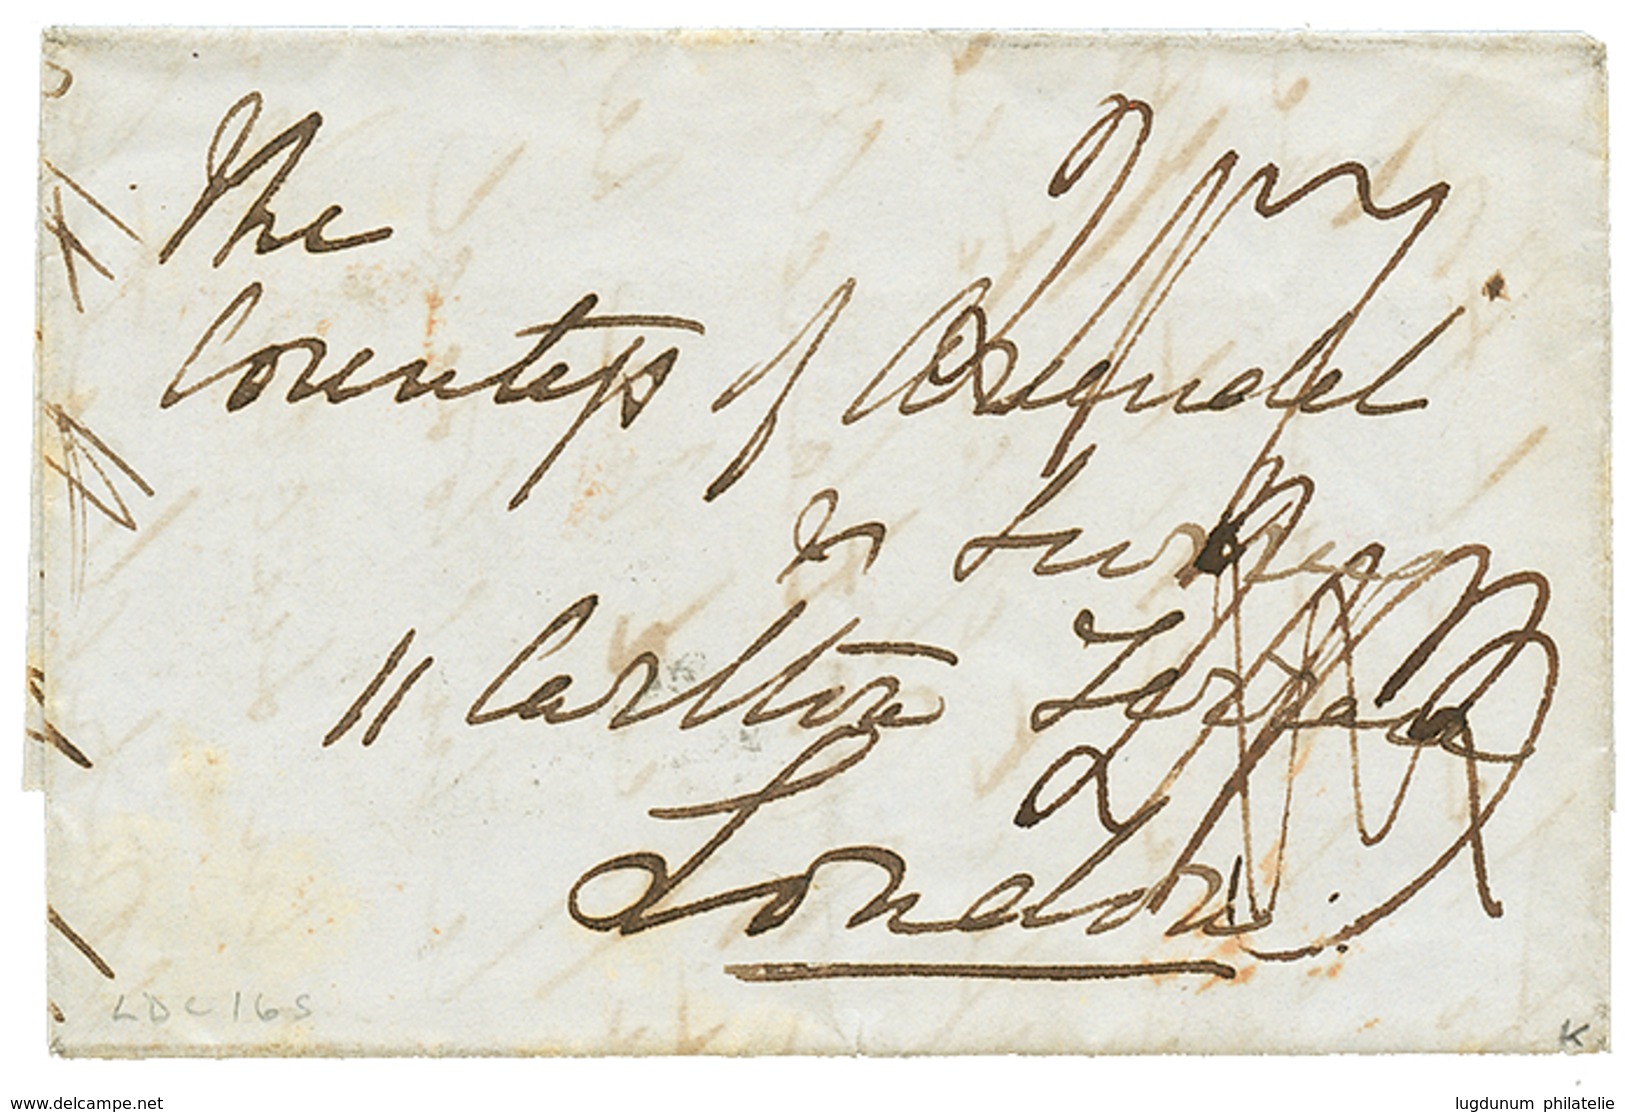 The
Countess of Arundel
& Surrey
11 Carlton Terrace
London
LDC 16S
K
www.delcampe.net
lugdunum philatelie